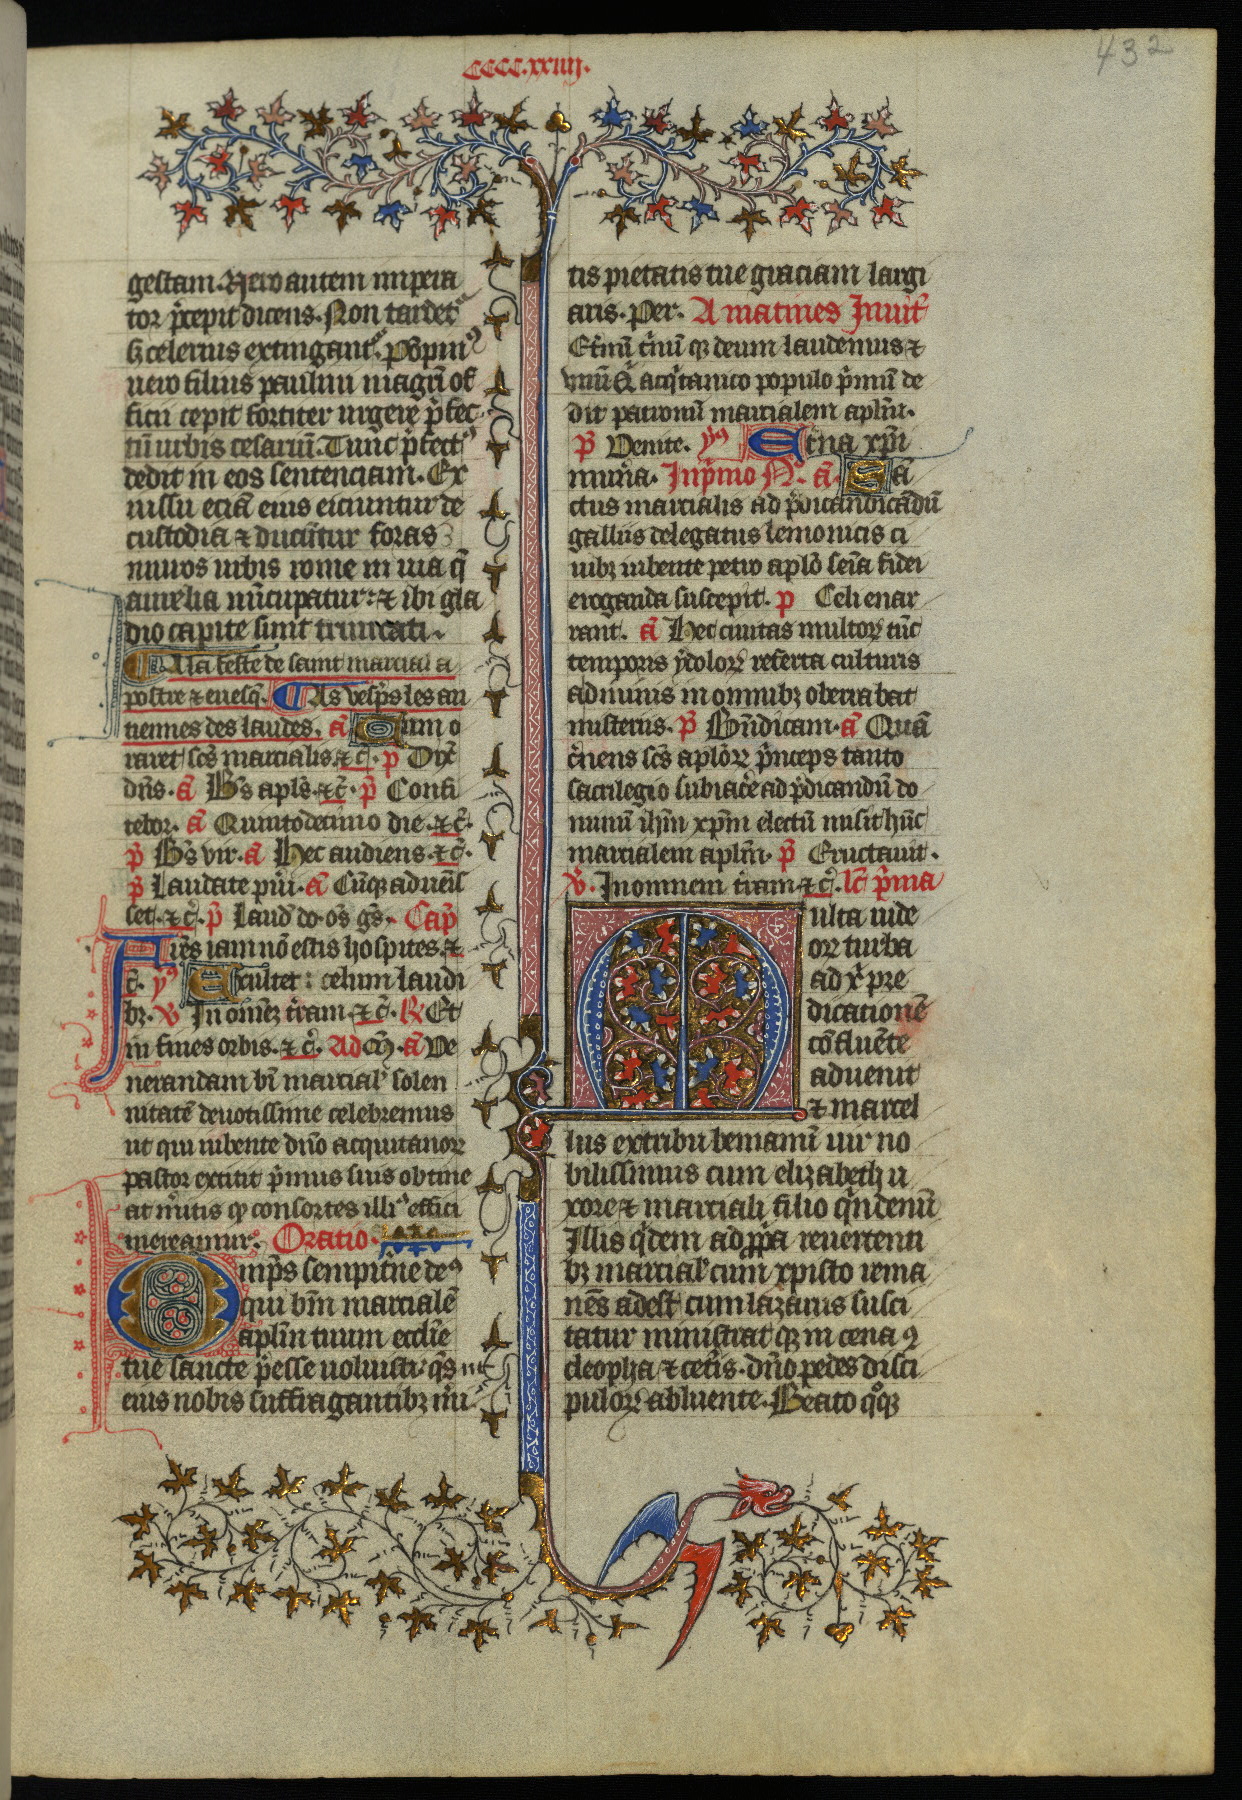 CCCC.xxiiij.
432
gestam. Nero autem impera
tor p̃cepit dicens. Non tardet᷑
s; celerius extingant᷑. Põpiniꝰ
nero filius paulini magr̃i of
ficii cepit fortiter urgere p̃fec
tũ urbis cesariũ. Tunc p̃fectꝰ
dedit in eos sentenciam. Ex
iussu eciã eius eiciuntur de
custodia ⁊ ducũtur foras
muros urbis rome in uia q̃
aurelia nũcupatur: ⁊ ibi gla
dio capite sunt truncati.
A la feste de saint marcial a
postre ⁊ euesq̃. As vesp̃s les an
tiennes des laudes. ã Cum o
raret sc̃s marcialis ⁊ c̃. p̃ Dix̃
dñs. ã B̃s apl̃s. ⁊ c̃. p̃ Confi
tebor. ã Quintodecimo die. ⁊ c̃.
p̃ B̃s vir. ã Hec audiens. ⁊ c̃.
p̃ Laudate pũi. ã Cũqꝫ aduẽis
set. ⁊ c̃. p̃ Laud̃ do. õs g̃s. Cap̃
Fr̃es iam nõ estis hospites. ⁊
c̃. yꝰ Exultet: celum laudi
bꝫ. v̓ In omẽꝫ t̃ram ⁊ c̃. ℞ Et
in fines orbis. ⁊ c̃. Ad cõ. ã Ve
nerandam b̃i marcial̃ solen
nitatẽ deuotissime celebremus
ut qui iubente dño acquitanoꝝ
pastor extitit p̃mus suis obtine
at mẽitis qꝫ consortes illiꝰ effici
mereamur. Oratio
Omp̃s sempit̃ne deꝰ
qui b̃m marcialẽ
apl̃m tuum eccl̃ie
tue sancte p̃esse uoluisti: q̃s ut
eius nobis suffragantibꝫ m̃i
tis pietatis tue graciam largi
aris. Per. A matines Inuit̃
Et̃nũ t̃nũ qꝫ deum laudemus ⁊
vnũ Q̃ acq̃tanico populo p̃mũ de
dit patronũ marcialem apl̃m.
p̃ Venite. yꝰ Et̃na xp̃i
mun̾a. In p̃mo N̾. ã. Sã
ctus marcialis ad p̃dicandũ
gallus delegatus lemonicis ci
uibꝫ iubente petro apl̃o sẽia fidei
eroganda suscepit. p̃ Celi enar
rant. ã Hec ciuitas multoꝝ tũc
temporis ydoloꝝ referta culturis
ad minis in omnibꝫ oberrabat
nisterus. p̃ Bñdicam. ã Quã
c̃nens sc̃s apl̃oꝝ p̃nceps tanto
sacrilegio subiac̃e ad p̃dicandũ do
minũ ihm̃ xp̃m electũ misit hũc
marcialem apl̃m. p̃ Eructauit.
v̓. In omnem t̃ram ⁊ c̃. lc̃ p̃ma
Multa uide
or turba
ad x̃ pre
dicationẽ
cõfluẽte
aduenit
⁊ marcel
lus ex tribu beniamĩ uir no
bilissimus cum elizabeth u
xore ⁊ marciali filio q̃ndenũ
Illis q̃dem ad ꝓp̃a reuertenti
bꝫ marcial̃ cum xpisto rema
nẽs adest cum lazarus susci
tatur ministrat qꝫ in cena
cleopha ⁊ cet̃is. dño pedes disci
puloꝝ abluente. Beato q̊qꝫ